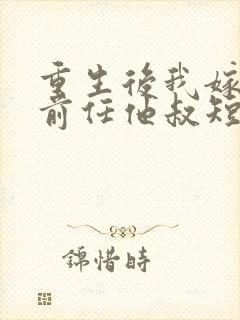 重生後我嫁
前任他叔短
錦惜時